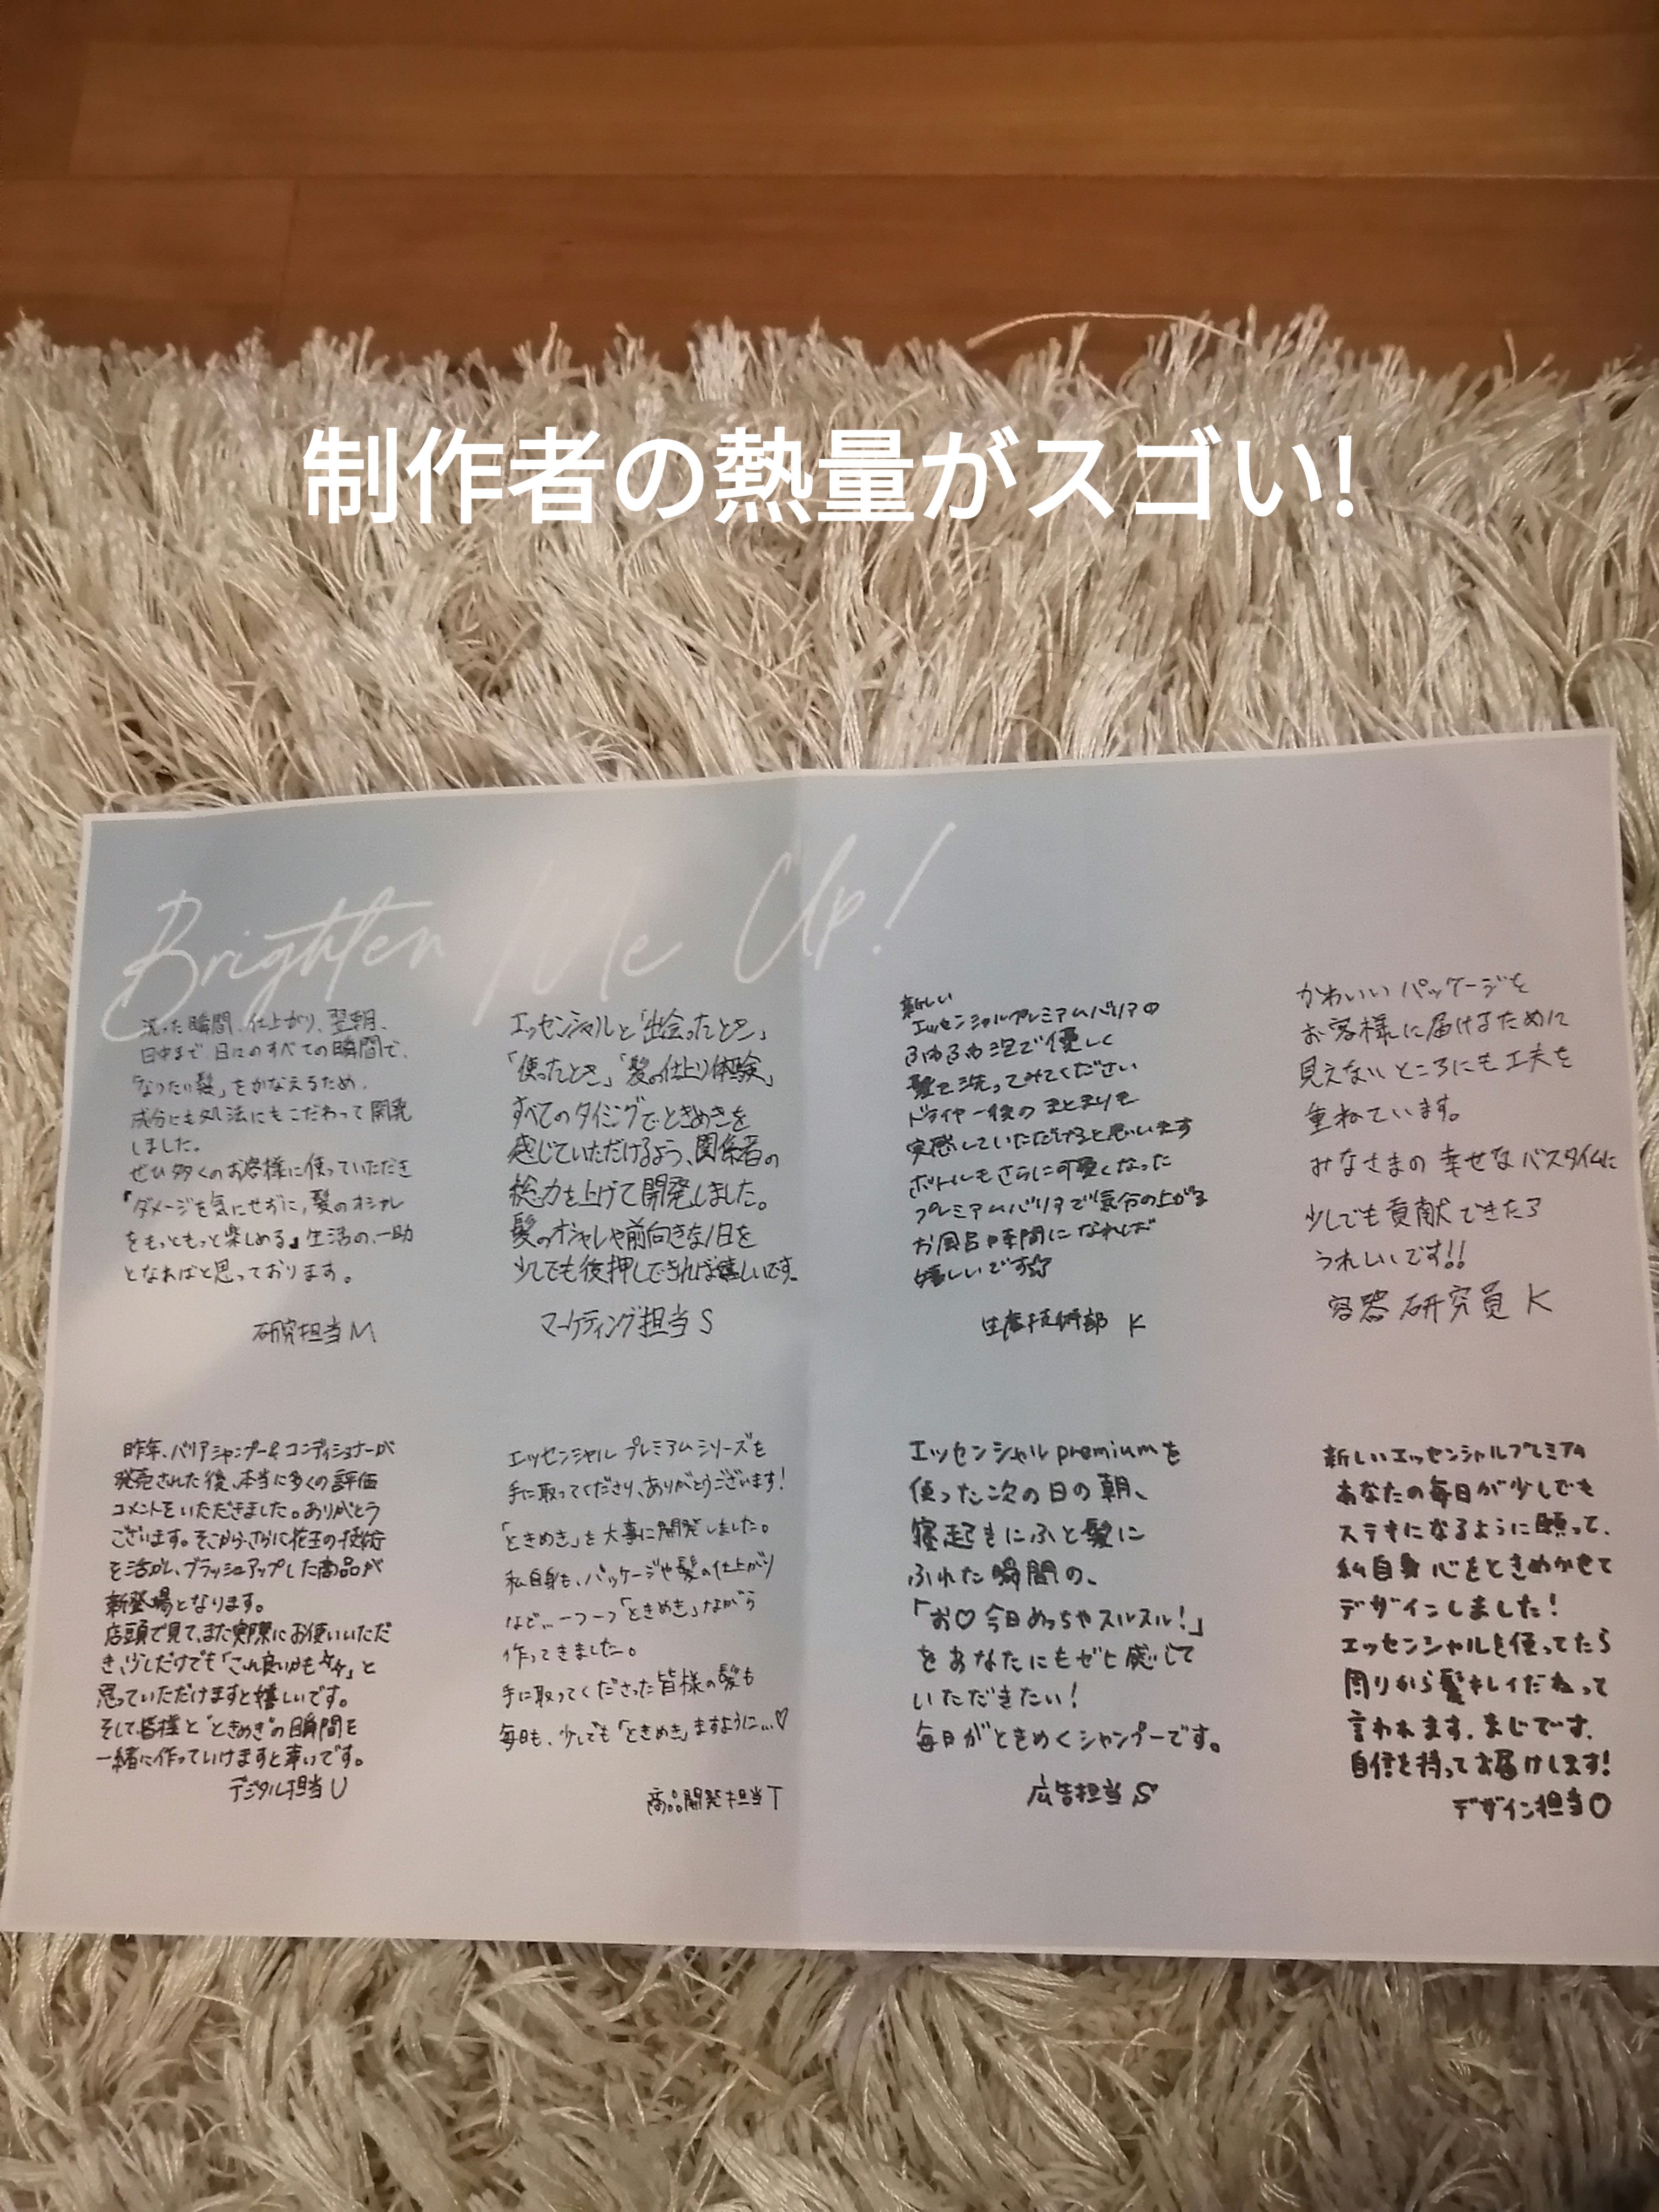 制作者の熱量がスゴい!
Brighten Me Up!
洗った瞬間、仕上がり、翌朝、
日中まで、目にのすべての瞬間で、
「なりたい髪」をかなえるため、
成分にも処法にもこだわって開発
しました。
ぜひ多くのお客様に使っていただき
『ダメージを気にせずに、髪のオシャレ
をもっともっと楽しめる』生活の、一助
となればと思っております。
研究担当M
エッセンシャルと「出会ったとき」
「使ったとき」「髪の仕上り体験」
すべてのタイミングでときめきを
感じていただけるよう、関係者の
総力を上げて開発しました。
髪のオシャレや前向きな1日を
少しでも後押しできれば嬉しいです。
マーケティング担当 S
新しい
エッセンシャルプレミアムバリアの
ふわふわ泡で優しく
髪を洗ってみてください
ドライヤー後のまとまりを
実感していただけると思います
ボトルもさらに可愛くなった
プレミアムバリアで気分の上がる
お風呂や時間になれば
嬉しいです☆
生産技術部 K
かわいいパッケージを
お客様に届けるために
見えないところにも工夫を
重ねています。
みなさまの幸せなバスタイムに
少しでも貢献できたら
うれしいです!!
容器研究員 K
昨年、バリアシャンプー&コンディショナーが
発売された後、本当に多くの評価
コメントをいただきました。ありがとう
ございます。そこから、さらに花王の技術
を活かし、ブラッシュアップした商品が
新登場となります。
店頭で見て、また実際にお使いいただ
き、少しだけでも「これ良いかも」と
思っていただけますと嬉しいです。
そして、皆様と"ときめき"の瞬間を
一緒に作っていけますと幸いです。
デジタル担当 U
エッセンシャル プレミアムシリーズを
手に取ってくださり、ありがとうございます!
「ときめき」を大事に開発しました。
私自身も、パッケージや髪の仕上がり
など…一つ一つ「ときめき」ながら
作ってきました。
手に取ってくださった皆様の髪も
毎日も、少しでも「ときめき」ますように…♡
商品開発担当 T
エッセンシャル premiumを
使った次の日の朝、
寝起きにふと髪に
ふれた瞬間の、
「お♡今日めっちゃスルスル!」
をあなたにもゼヒ感じて
いただきたい!
毎日がときめくシャンプーです。
広告担当 S
新しいエッセンシャルプレミアム
あなたの毎日が少しでも
ステキになるように願って、
私自身心をときめかせて
デザインしました!
エッセンシャルを使ってたら
周りから髪キレイだねって
言われます。まじです。
自信を持ってお届けします!
デザイン担当 O